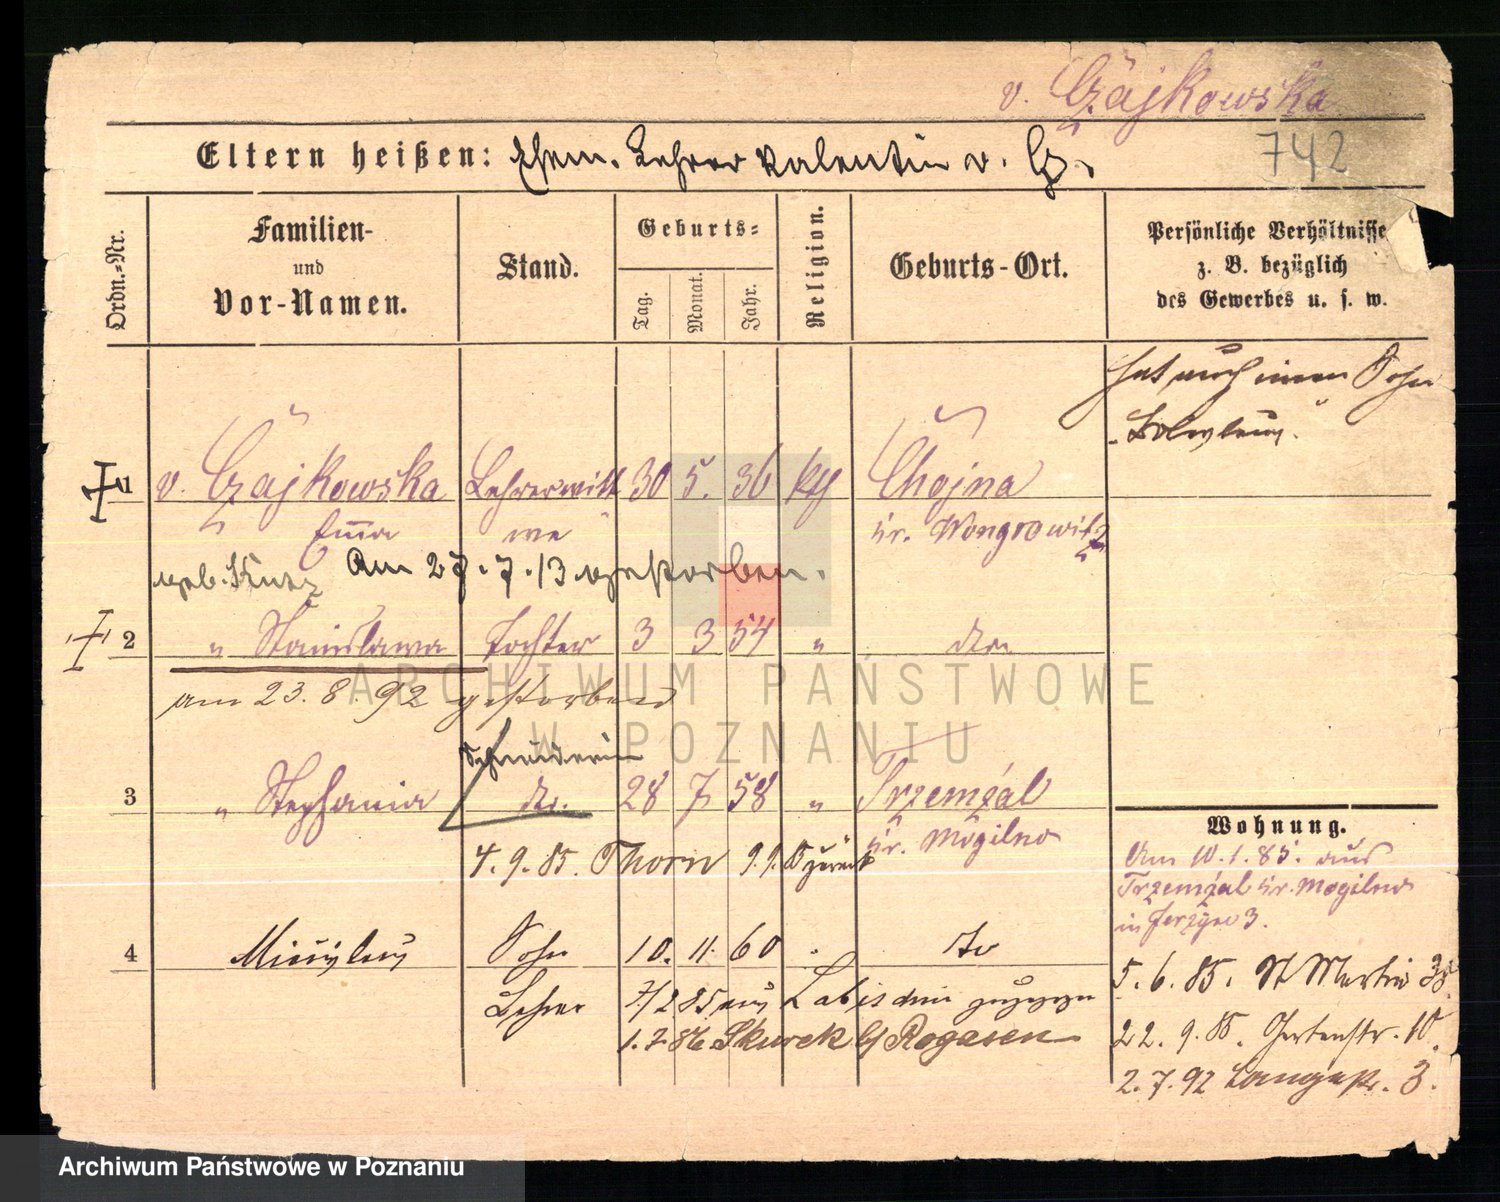 v. Czajkowska
Eltern heißen: Ehem. Lehrer Valentin v. Cz.
742
Ordn.-Nr.
Familien-
und
Vor-Namen.
Stand.
Geburts-
Tag.
Monat.
Jahr.
Religion.
Geburts-Ort.
Persönliche Verhältnisse
z. B. bezüglich
des Gewerbes u. s. w.
hat auch einen Sohn
Boleslaus.
1 v. Czajkowska Lehrerwitt 30 5. 36 kth Chojna
Emma we Kr. Wongrowitz
geb. am 27.7.13 gestorben.
2 " Stanislawa Tochter 3 3 54 " do.
am 23.8.92 gestorben
Schneiderin
3 " Stephania do. 28 7 58 " Trzemżal
Kr. Mogilno
4.9.85. Thorn 9.9.85 zurück
4 Sohn 10. 11. 60 " do
Lehrer 7/2 85 aus Labischin zugezogen
1.7.86 Skurek b/ Rogasen
Wohnung.
Am 10.1.85. aus
Trzemżal Kr. Mogilno
in Jerzyce 3.
5.6.85. St Martin
22.9.85. Gartenstr. 10.
2.7.92 Langestr. 3.
ARCHIWUM PAŃSTWOWE
W POZNANIU
Archiwum Państwowe w Poznaniu